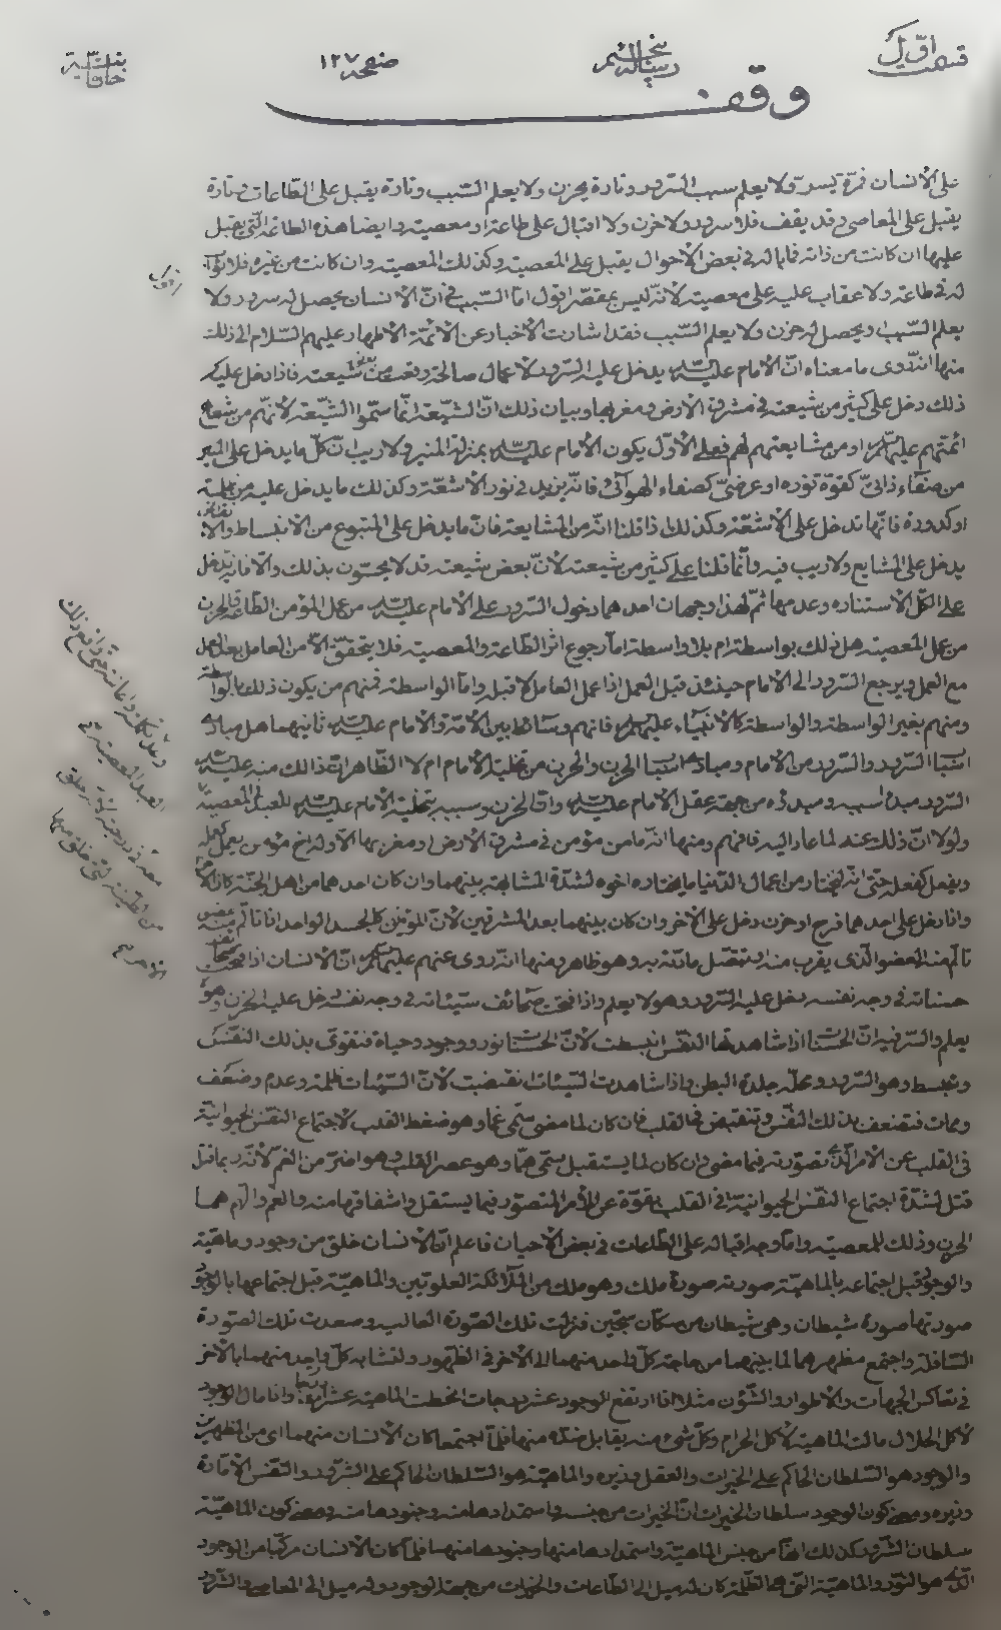 قسمت اول
صفحه ١٢٧
وقف
على الانسان فمرّة يسرّ ولا يعلم سبب السرور وتارة يحزن ولا يعلم السبب وتارة يقبل على الطاعات وتارة
يقبل على المعاصى وقد يقف فلا سرور ولا حزن ولا اقبال على طاعة او معصية وايضا هذه الطاعة التى يقبل
عليها ان كانت من ذاته فما باله فى بعض الاحوال يقبل على المعصية وكذلك المعصية وان كانت من غيره فلا ثواب
له فى طاعة ولا عقاب عليه على معصية لانه ليس بمقصّر اقول اما السبب فى انّ الانسان يحصل له سرور ولا
يعلم السبب ويحصل له حزن ولا يعلم السبب فقد اشارت الاخبار عن الائمّة الاطهار عليهم السلام الى ذلك
منها انه روى ما معناه انّ الامام عليه السلام يدخل عليه السرور لاعمال صالحة وقعت من بعض شيعته فاذا دخل عليه
ذلك دخل على كثير من شيعته فى مشرق الارض ومغربها وبيان ذلك انّ الشيعة انّما سمّوا الشيعة لانّهم من شعاع
ائمتهم عليهم السلام او من مشايعتهم لهم فعلى الاوّل يكون الامام عليه السلام بمنزلة المنير ولا ريب انّ كلّ ما يدخل على المنير
من صفاء ذاتىّ كقوّة نوره او عرضىّ كصفاء الهوآئى فانّه يزيد فى نور الاشعّة وكذلك ما يدخل عليه من
او كدورة فانّها تدخل على الاشعّة وكذلك اذا قلنا انّه من المشايعة فانّ ما يدخل على المتبوع من الانبساط والانقباض
يدخل على المشايع ولا ريب فيه وانّما قلنا على كثير من شيعته لانّ بعض شيعته قد لا يحسّون بذلك والّا فانه يدخل
على الكلّ الاستنارة وعدمها ثمّ لهذا وجهان احدهما دخول السرور على الامام عليه السلام من عمل المؤمن الطاعة والحزن
من عمل المعصية هل ذلك بواسطة ام بلا واسطة امّا رجوع اثر الطاعة والمعصية فلا يتحقّق الّا من العامل بعد العمل
مع العمل ويرجع السرور الى الامام حينئذ قبل العمل اذا عمل العامل لا قبل وامّا الواسطة فمنهم من يكون ذلك بالواسطة
ومنهم بغير الواسطة والواسطة كالانبياء عليهم السلام فانهم وسائط بين الامّة والامام عليه السلام ثانيهما هل مبادى
اسباب السرور والسرور من الامام ومبادى اسباب الحزن والحزن من تخلية الامام ام لا الظاهر انّ ذلك منه عليه السلام
السرور مبدأ سببه ومبدؤه من جهة عقل الامام عليه السلام وامّا الحزن وسببه بتخلية الامام عليه السلام للعبد المعصية
ولولا انّ ذلك عنه لما عاد اليه فافهم ومنها انّه ما من مؤمن فى مشرق الارض او مغربها الّا وله اخ مؤمن يعمل كعمله
ويفعل كفعله حتى انّه يختار من اعمال الدّنيا ما يختاره اخوه لشدّة المشابهة بينهما وان كان احدهما من اهل الجنّة كان الاخر
واذا دخل على احدهما فرح او حزن دخل على الاخر وان كان بينهما بعد المشرقين لانّ المؤمنين كالجسد الواحد اذا تألّم عضو منه
تألّم منه العضو الذى يقرب منه او يتّصل مادّته به وهو ظاهر ومنها انّه روى عنهم عليهم السلام انّ الانسان اذا فتحت صحائف
حسناته فى وجه نفسه دخل عليه السرور وهو لا يعلم واذا فتحت صحائف سيّئاته فى وجه نفسه دخل عليه الحزن وهو لا
يعلم والسرّ فيه انّ الحسنات اذا شاهدتها النفس انبسطت لانّ الحسنات نور ووجود وحياة فتقوى بذلك النفس
وتنبسط وهو السرور ومحلّه جلدة البطن واذا شاهدت السيّئات انقبضت لانّ السيّئات ظلمة وعدم وضعف
وممات فتضعف بذلك النفس وتنقبض فى القلب فان كان لما مضى سمّى غمّا وهو ضغط القلب لاجتماع النفس الحيوانيّة
فى القلب عن الامر الّذى تصوّرته فيما مضى وان كان لما يستقبل سمّى همّا وهو عصر القلب وهو اضرّ من الغم لانّه ربما قتل
قتل لشدّة اجتماع النفس الحيوانيّة فى القلب بقوّة عن الامر المتصوّر فيما يستقبل واشفاقها منه والغم والهم هما
الحزن وذلك للمعصية وامّا وجه اقباله على الطاعات فى بعض الاحيان فاعلم انّ الانسان خلق من وجود وماهيّة
والوجود قبل اجتماعه بالماهيّة صورته صورة ملك وهو ملك من الملائكة العلويّين والماهيّة قبل اجتماعها بالوجود
صورتها صورة شيطان وهى شيطان من سكّان سجّين فنزلت تلك الصّورة العالية وصعدت تلك الصّورة
السّافلة واجتمع مظهرهما لما بينهما من حاجة كلّ واحد منهما الى الاخر فى الظهور ولتشابه كلّ واحد منهما بالاخر
فى تعاكس الجهات والاطوار والشّؤن مثلا اذا ارتفع الوجود عشر درجات انحطت الماهيّة عشر درجات واذا مال الوجود
لاكل الحلال مالت الماهيّة لاكل الحرام وكلّ شىء منه يقابل ضدّه منها فلمّا اجتمعا كان الانسان منهما اى من المظهرين
والوجود هو السّلطان الحاكم على الخيرات والعقل وزيره والماهيّة هو السّلطان الحاكم على الشرور والنفس الامّارة
وزيره ومعنى كون الوجود سلطان الخيرات انّ الخيرات من جنسه واستمدادها منه وجنودها منه ومعنى كون الماهيّة
سلطان الشرور كذلك انّها من جنس الماهيّة واستمدادها منها وجنودها منها فلمّا كان الانسان مركّبا من الوجود
الّذى هو النّور والماهيّة التى هى الظّلمة كان له ميل الى الطاعات والخيرات من جهة الوجود وله ميل الى المعاصى والشرور